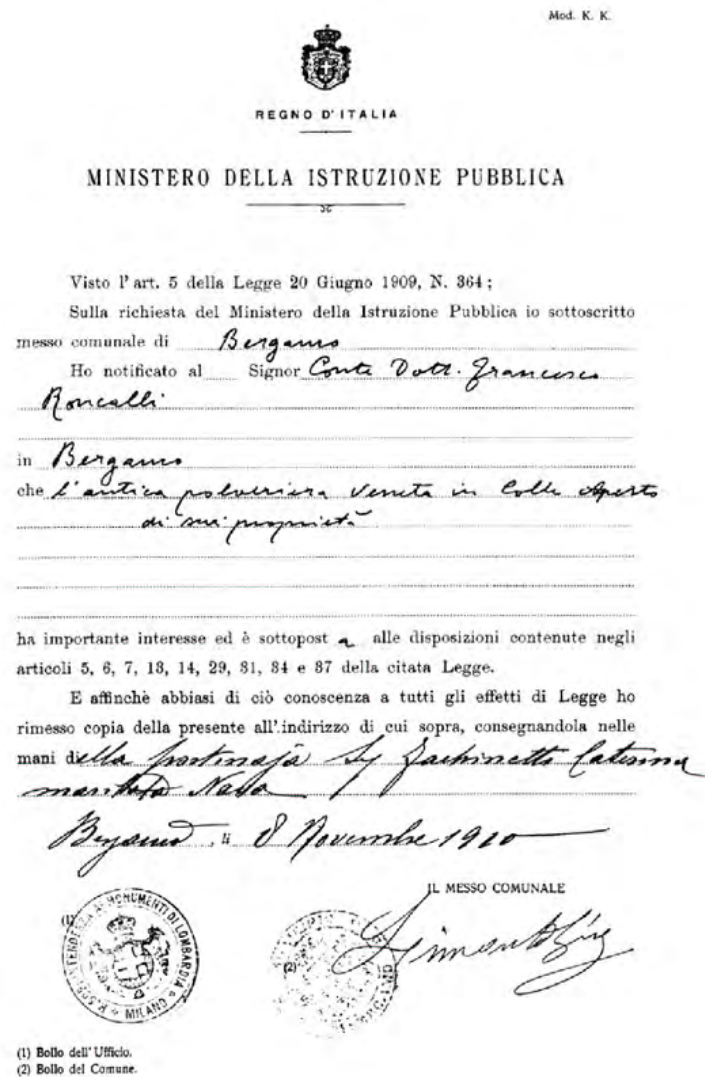 Mod. K. K.
REGNO D'ITALIA
MINISTERO DELLA ISTRUZIONE PUBBLICA
Visto l'art. 5 della Legge 20 Giugno 1909, N. 364;
Sulla richiesta del Ministero della Istruzione Pubblica io sottoscritto
messo comunale di Bergamo
Ho notificato al Signor Conte Dott. Francesco
Roncalli
in Bergamo
che l'antica polveriera veneta in Colle Aperto
di sua proprietà
ha importante interesse ed è sottopost a alle disposizioni contenute negli
articoli 5, 6, 7, 13, 14, 29, 31, 34 e 37 della citata Legge.
E affinchè abbiasi di ciò conoscenza a tutti gli effetti di Legge ho
rimesso copia della presente all'indirizzo di cui sopra, consegnandola nelle
mani della portinaja Caterina
maritata Nava
Bergamo, li 8 Novembre 1910
IL MESSO COMUNALE
(1)
R. SOPRINTENDENZA AI MONUMENTI DI LOMBARDIA
MILANO
(2)
(1) Bollo dell'Ufficio.
(2) Bollo del Comune.